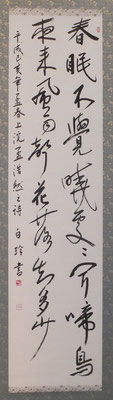 春眠不覺曉處〻聞啼鳥
夜来風雨聲花落知多少
平成己亥年孟春上浣孟浩然之詩 白玲書